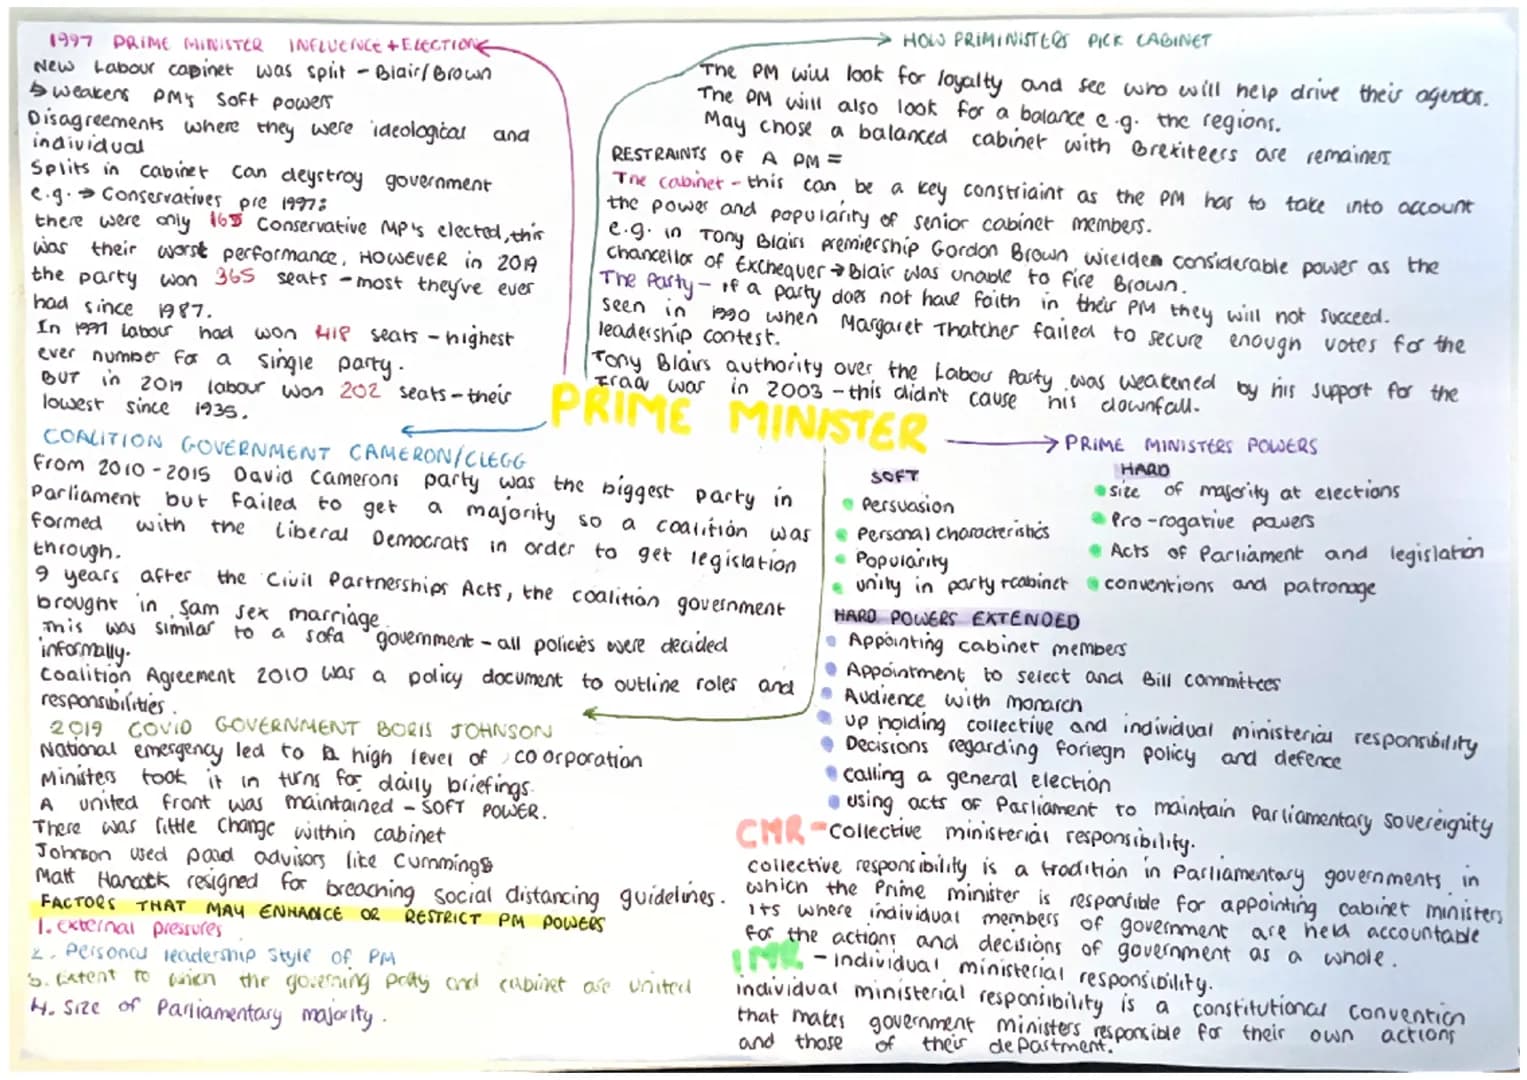 1997 PRIME MINISTER INFLUENCE + ELECTION
New Labour cabinet was split - Blair/Brown
↳ weakens PM's soft powers
Disagreements where they were ideological and
individual
Splits in cabinet can deystroy government
e.g. → Conservatives pre 1997:
there were only 165 Conservative MP's elected, this
was their worst performance, HOWEVER in 2019
the party won 365 seats - most they've ever
had since 1987.
In 1997 Labour had won 418 seats - highest
ever number for a single party.
BUT in 2019 labour won 202 seats - their
lowest since 1935.
HOW PRIMINISTERS PICK CABINET
The PM will look for loyalty and see who will help drive their agendas.
The PM will also look for a balance e.g. the regions.
May chose a balanced cabinet with Brexiteers are remainers
RESTRAINTS OF A PM =
The cabinet - this can be a key constriaint as the PM has to take into account
the power and popularity of senior cabinet members.
e.g. in Tony Blairs premiership Gordon Brown wielded considerable power as the
chancellor of Exchequer → Blair was unable to fire Brown.
The Party - if a party does not have faith in their PM they will not succeed.
seen in 1990 when Margaret Thatcher failed to secure enough votes for the
leadership contest.
Tony Blairs authority over the Labour Party was weakened by his support for the
Iraq war in 2003 - this didn't cause his downfall.
PRIME MINISTER
COALITION GOVERNMENT CAMERON/CLEGG
From 2010-2015 David Camerons party was the biggest party in
Parliament but failed to get a majority so a coalition was
formed with the Liberal Democrats in order to get legislation
through.
9 years after the Civil Partnerships Acts, the coalition government
brought in sam sex marriage
This was similar to a sofa government - all policies were decided
informally.
Coalition Agreement 2010 was a policy document to outline roles and
responsibilities.
2019 COVID GOVERNMENT BORIS JOHNSON
National emergency led to a high level of coorporation
Ministers took it in turns for daily briefings.
A united front was maintained - SOFT POWER.
There was little change within cabinet
Johnson used paid advisors like Cummings
Matt Hancock resigned for breaching social distancing guidelines.
FACTORS THAT MAY ENHANCE OR RESTRICT PM POWERS
1. External pressures
2. Personal leadership style of PM
3. Extent to which the governing party and cabinet are united
4. Size of Parliamentary majority.
PRIME MINISTERS POWERS
SOFT
Persuasion
Personal characteristics
Popularity
unity in party + cabinet
HARD
size of majority at elections
Pro-rogative powers
Acts of Parliament and legislation
conventions and patronage
HARD POWERS EXTENDED
Appointing cabinet members
Appointment to select and Bill committees
Audience with monarch
up holding collective and individual ministerial responsibility
Decisions regarding foriegn policy and defence
calling a general election
using acts of Parliament to maintain Parliamentary sovereignity
CMR - collective ministerial responsibility.
collective responsibility is a tradition in Parliamentary governments in
which the Prime minister is responsible for appointing cabinet ministers
its where individual members of government are held accountable
for the actions and decisions of government as a whole.
IMR - individual ministerial responsibility.
individual ministerial responsibility is a constitutional convention
that makes government ministers responsible for their own actions
and those of their department.